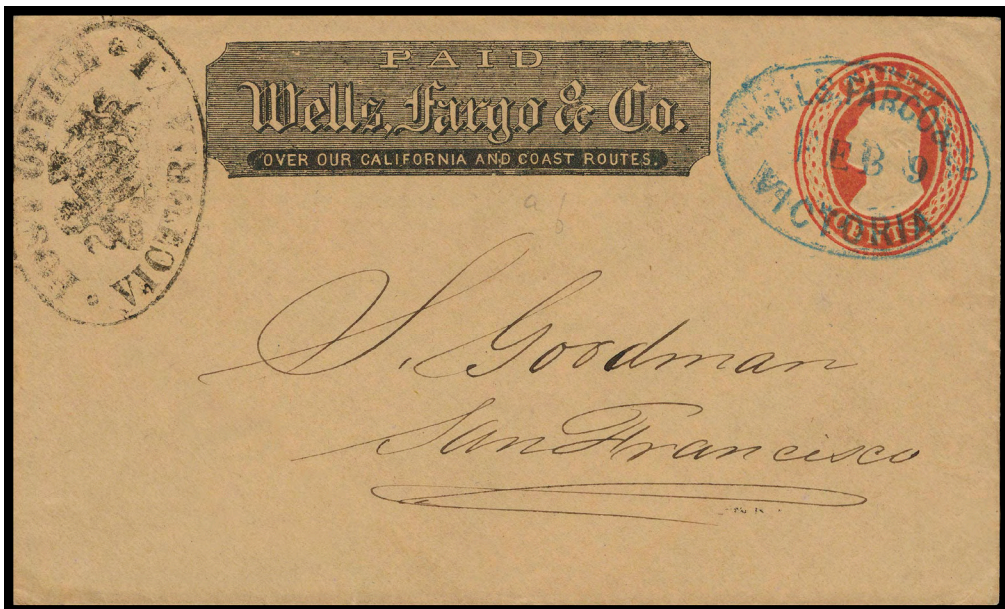 POST OFFICE &
VICTORIA
PAID
Wells, Fargo & Co.
OVER OUR CALIFORNIA AND COAST ROUTES.
THREE
WELLS, FARGO & CO
FEB 9
VICTORIA
S. Goodman
San Francisco